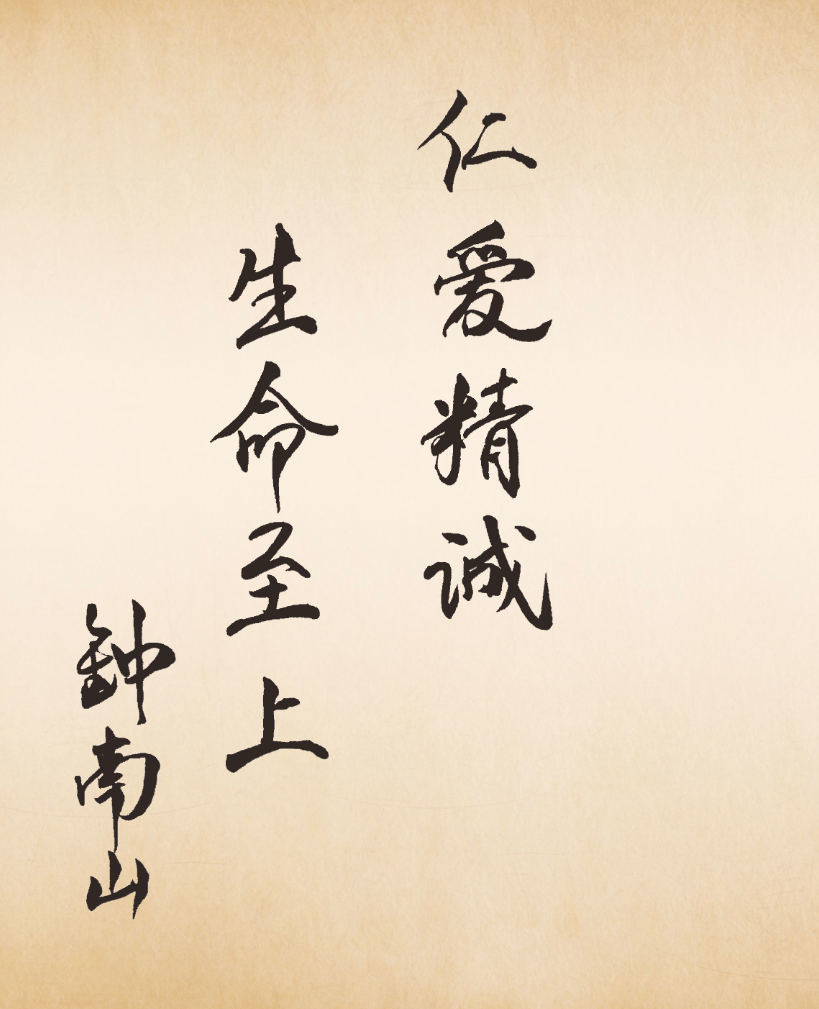 仁爱精诚
生命至上
鈡南山